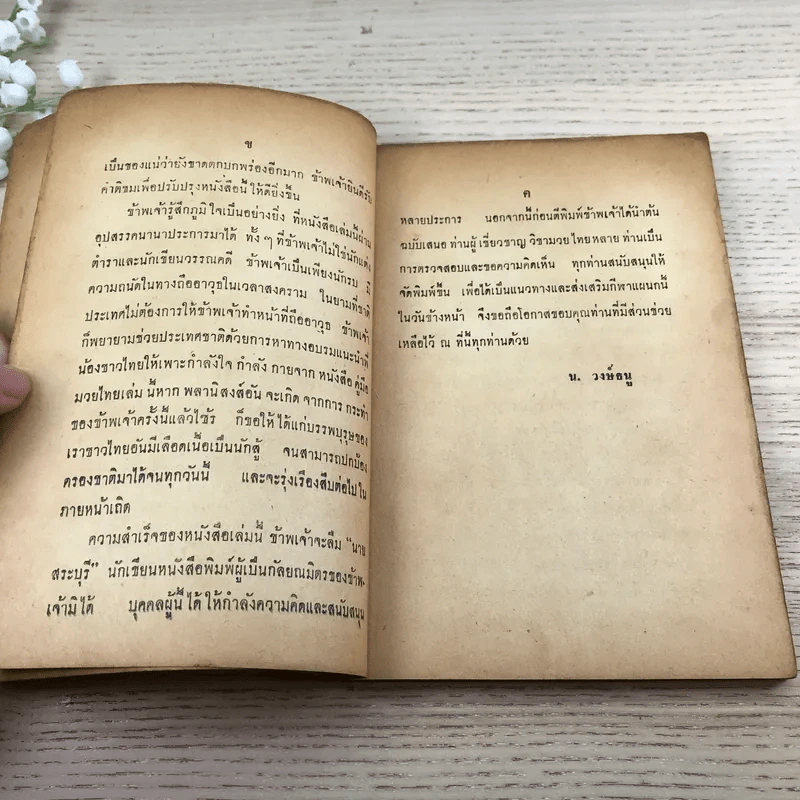 ข
เป็นของแน่ว่ายังขาดตกบกพร่องอีกมาก ข้าพเจ้ายินดีรับ
คำติชมเพื่อปรับปรุงหนังสือนี้ ให้ดียิ่งขึ้น
ข้าพเจ้ารู้สึกภูมิใจเป็นอย่างยิ่ง ที่หนังสือเล่มนี้ผ่าน
อุปสรรคนานาประการมาได้ ทั้ง ๆ ที่ข้าพเจ้าไม่ใช่นักแต่ง
ตำราและนักเขียนวรรณคดี ข้าพเจ้าเป็นเพียงนักรบ มี
ความถนัดในทางถืออาวุธในเวลาสงคราม ในยามที่ชาติ
ประเทศไม่ต้องการให้ข้าพเจ้าทำหน้าที่ถืออาวุธ ข้าพเจ้า
ก็พยายามช่วยประเทศชาติด้วยการหาทางอบรมแนะนำพี่
น้องชาวไทยให้เพาะกำลังใจ กำลัง กายจาก หนังสือ คู่มือ
มวยไทยเล่ม นี้หาก พลานิสงส์อัน จะเกิด จากการ กระทำ
ของข้าพเจ้าครั้งนี้แล้วไซร้ ก็ขอให้ ได้แก่บรรพบุรุษของ
เราชาวไทยอันมีเลือดเนื้อเป็นนักสู้ จนสามารถปกป้อง
ครองชาติมาได้จนทุกวันนี้ และจะรุ่งเรืองสืบต่อไปใน
ภายหน้าเถิด
ความสำเร็จของหนังสือเล่มนี้ ข้าพเจ้าจะลืม "นาย
สระบุรี" นักเขียนหนังสือพิมพ์ผู้เป็นกัลยณมิตรของข้าพ-
เจ้ามิได้ บุคคลผู้นี้ ได้ ให้กำลังความคิดและสนับสนุน
ค
หลายประการ นอกจากนี้ก่อนตีพิมพ์ข้าพเจ้าได้นำต้น
ฉบับเสนอ ท่านผู้ เชี่ยวชาญ วิชามวย ไทยหลาย ท่านเป็น
การตรวจสอบและขอความคิดเห็น ทุกท่านสนับสนุนให้
จัดพิมพ์ขึ้น เพื่อได้เป็นแนวทางและส่งเสริมกีฬาแผนกนี้
ในวันข้างหน้า จึงขอถือโอกาสขอบคุณท่านที่มีส่วนช่วย
เหลือไว้ ณ ที่นี้ทุกท่านด้วย
น. วงษ์ธนู